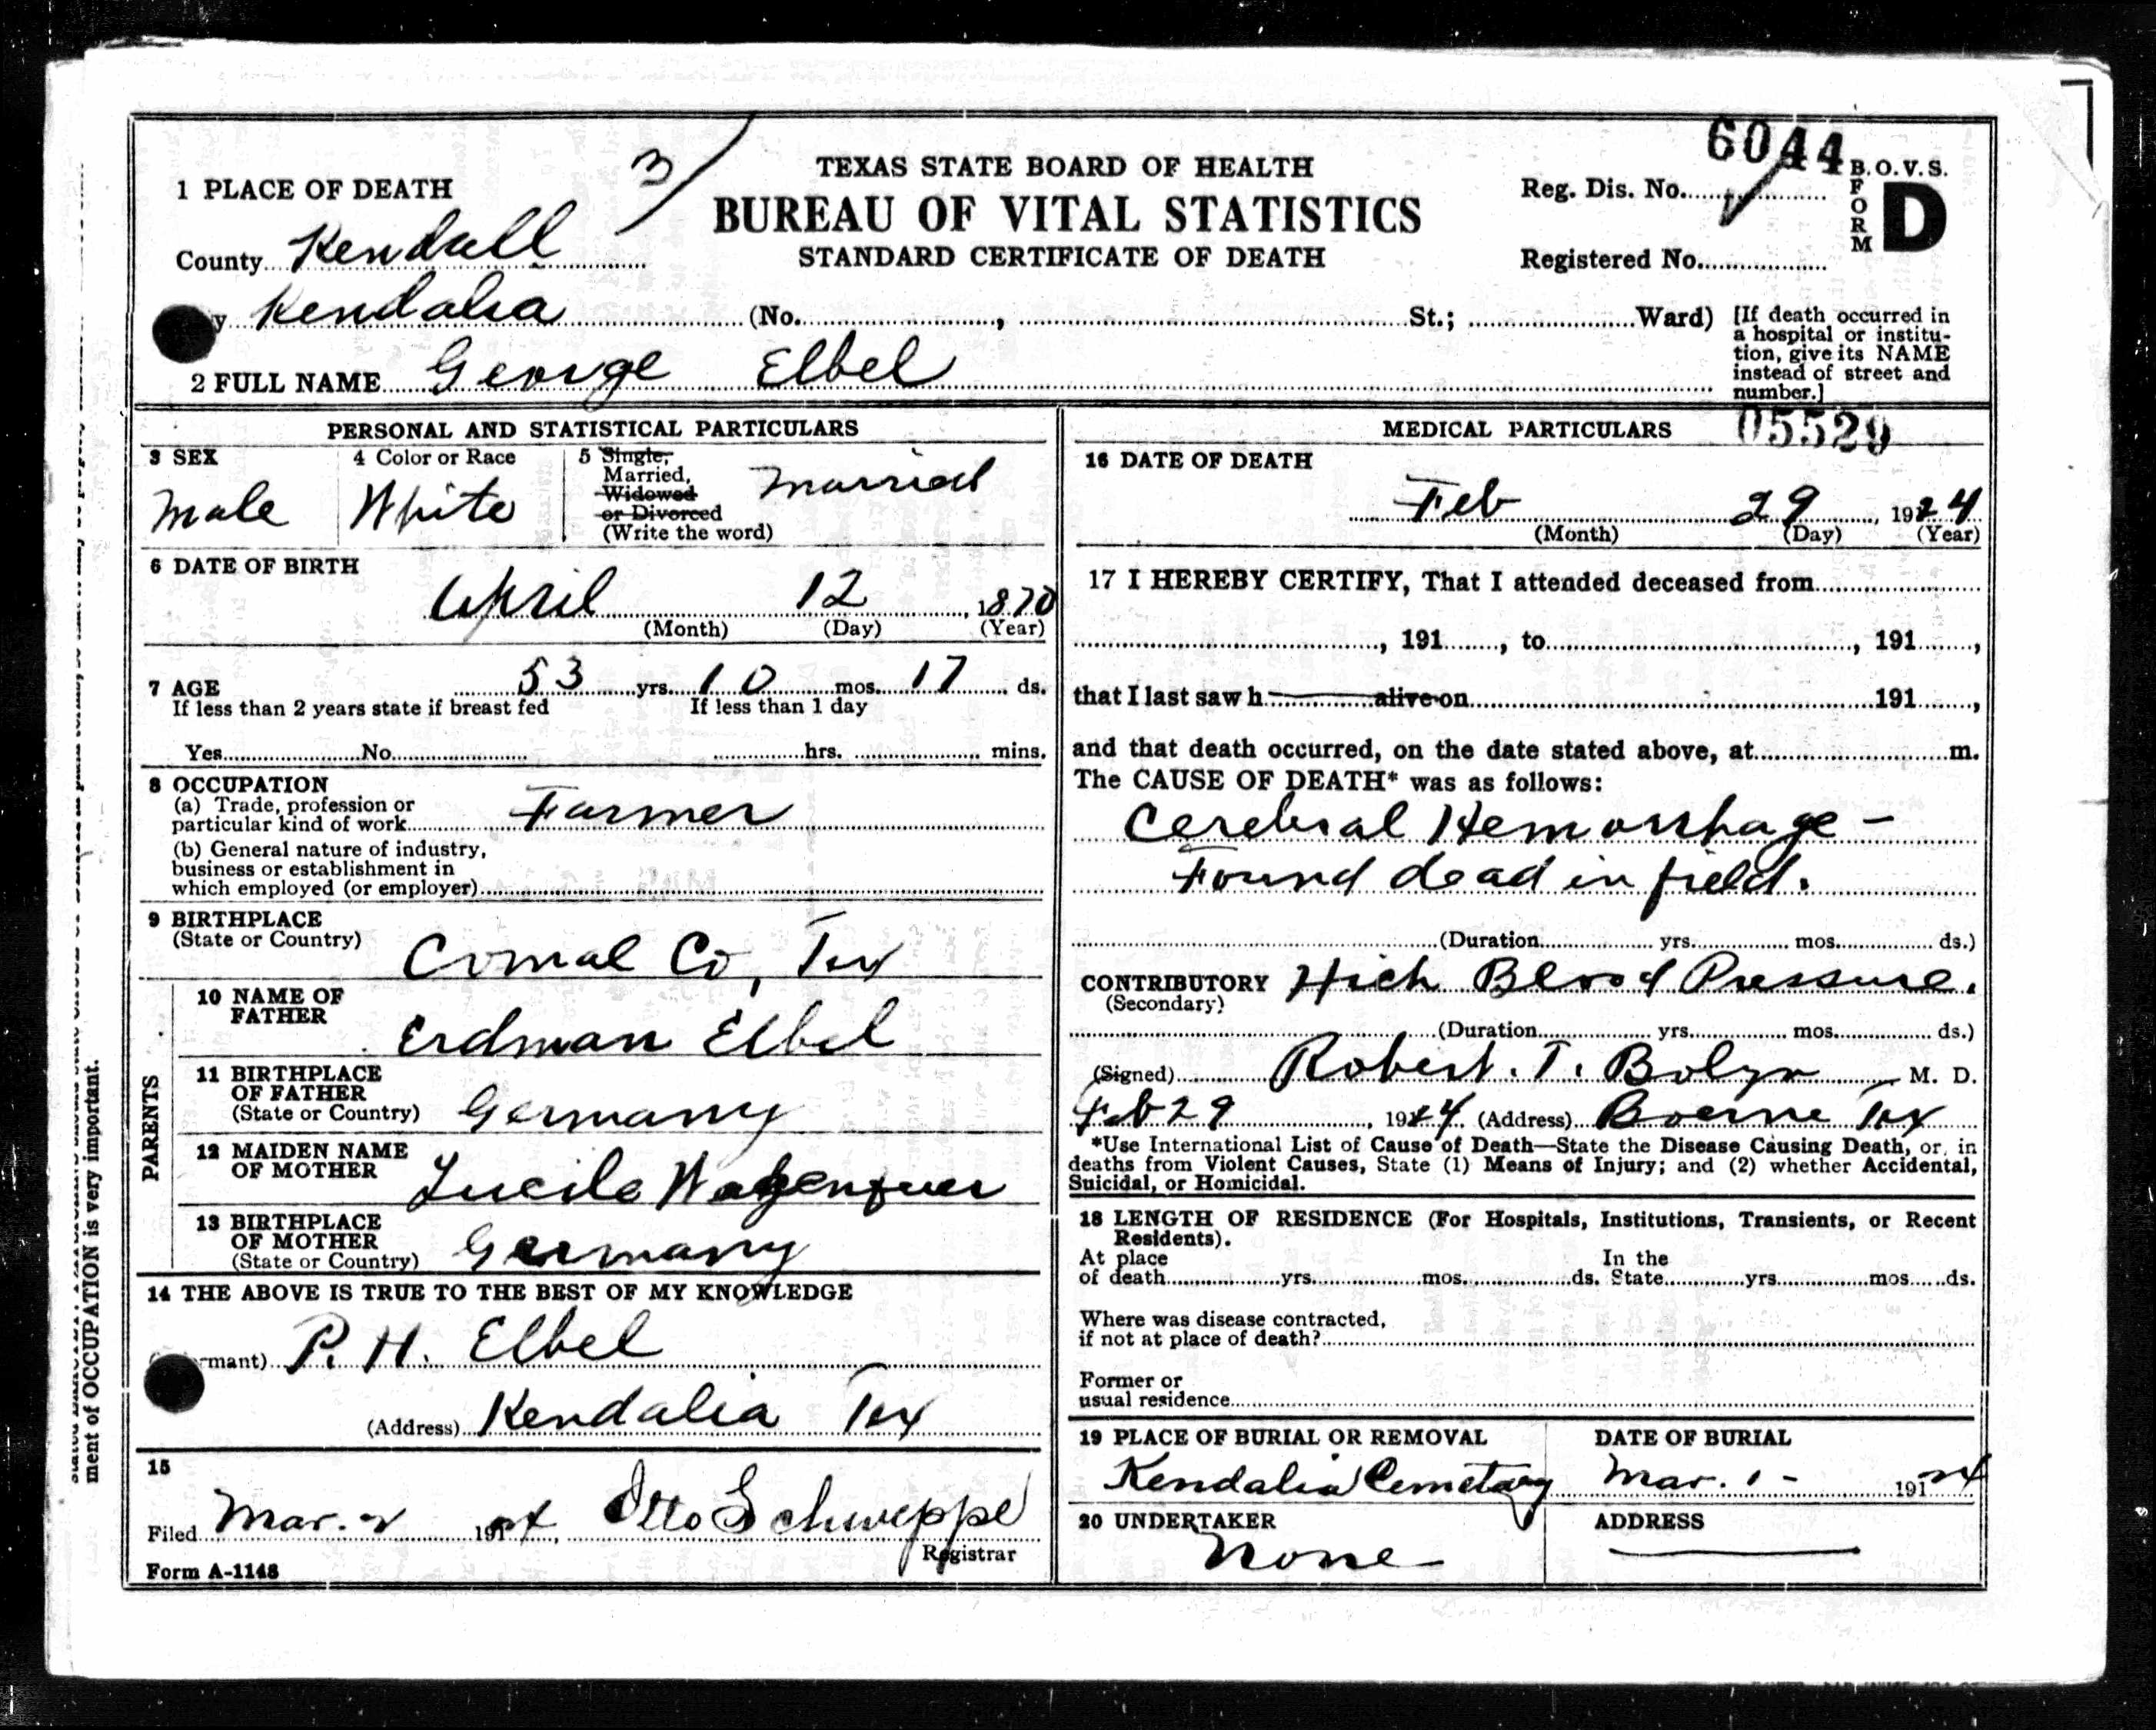 6044
3
TEXAS STATE BOARD OF HEALTH
BUREAU OF VITAL STATISTICS
STANDARD CERTIFICATE OF DEATH
Reg. Dis. No.
B. O. V. S.
FORM
D
Registered No.
1 PLACE OF DEATH
County Kendall
y Kendalia (No. , St.; Ward)
[If death occurred in
a hospital or institu-
tion, give its NAME
instead of street and
number.]
2 FULL NAME George Elbel
PERSONAL AND STATISTICAL PARTICULARS
3 SEX
Male
4 Color or Race
White
5 Single,
Married,
Widowed
or Divorced
(Write the word)
Married
6 DATE OF BIRTH
April 12, 1870
(Month) (Day) (Year)
7 AGE 53 yrs. 10 mos. 17 ds.
If less than 2 years state if breast fed If less than 1 day
Yes No hrs. mins.
8 OCCUPATION
(a) Trade, profession or
particular kind of work Farmer
(b) General nature of industry,
business or establishment in
which employed (or employer)
9 BIRTHPLACE
(State or Country) Comal Co, Tex
PARENTS
10 NAME OF
FATHER
Erdman Elbel
11 BIRTHPLACE
OF FATHER
(State or Country) Germany
12 MAIDEN NAME
OF MOTHER
Lucile
13 BIRTHPLACE
OF MOTHER
(State or Country) Germany
14 THE ABOVE IS TRUE TO THE BEST OF MY KNOWLEDGE
rmant) P. H. Elbel
(Address) Kendalia Tex
15
Filed Mar. 2 1924, Otto Schweppe
Registrar
Form A-1148
MEDICAL PARTICULARS
05529
16 DATE OF DEATH
Feb 29, 1924
(Month) (Day) (Year)
17 I HEREBY CERTIFY, That I attended deceased from
, 191 , to , 191 ,
that I last saw h alive on 191 ,
and that death occurred, on the date stated above, at m.
The CAUSE OF DEATH* was as follows:
Cerebral Hemorrhage -
Found dead in field.
(Duration yrs. mos. ds.)
CONTRIBUTORY High Blood Pressure.
(Secondary)
(Duration yrs. mos. ds.)
(Signed) Robert. T. M. D.
Feb 29, 1924 (Address) Boerne Tex
*Use International List of Cause of Death—State the Disease Causing Death, or, in
deaths from Violent Causes, State (1) Means of Injury; and (2) whether Accidental,
Suicidal, or Homicidal.
18 LENGTH OF RESIDENCE (For Hospitals, Institutions, Transients, or Recent
Residents).
At place In the
of death yrs. mos. ds. State yrs. mos. ds.
Where was disease contracted,
if not at place of death?
Former or
usual residence
19 PLACE OF BURIAL OR REMOVAL
Kendalia Cemetary
DATE OF BURIAL
Mar. 1 - 1924
20 UNDERTAKER
None
ADDRESS
ment of OCCUPATION is very important.